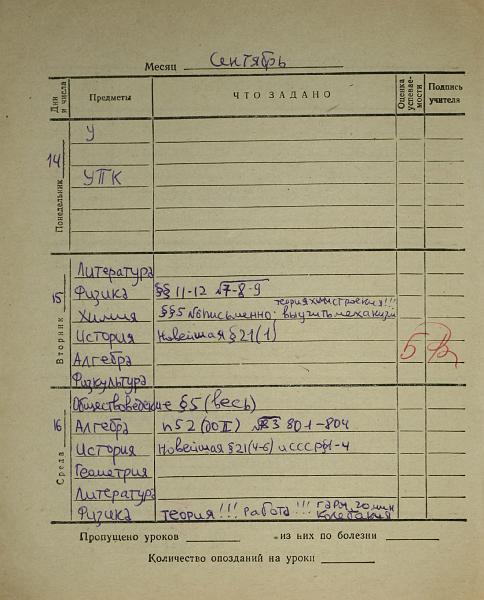 Месяц Сентябрь
Дни и числа Предметы ЧТО ЗАДАНО Оценка успеваемости Подпись учителя
Понедельник 14
У
УПК
Вторник 15
Литература
Физика §§ 11-12 √7-8-9
теория хим строения!!!
Химия §§5 №6 письменно: выучить механизм
История Новейшая §21(1)
Алгебра 5
Физкультура
Среда 16
Обществоведение §5 (весь)
Алгебра п52 (до II) 801-804
История Новейшая §21(4-6) и СССР §1-4
Геометрия
Литература
Физика теория!!! работа!!! колебания
Пропущено уроков из них по болезни
Количество опозданий на уроки